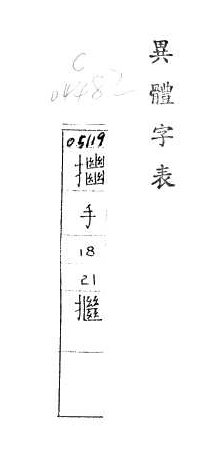 異體字表
C
04482
05119
手
18
21